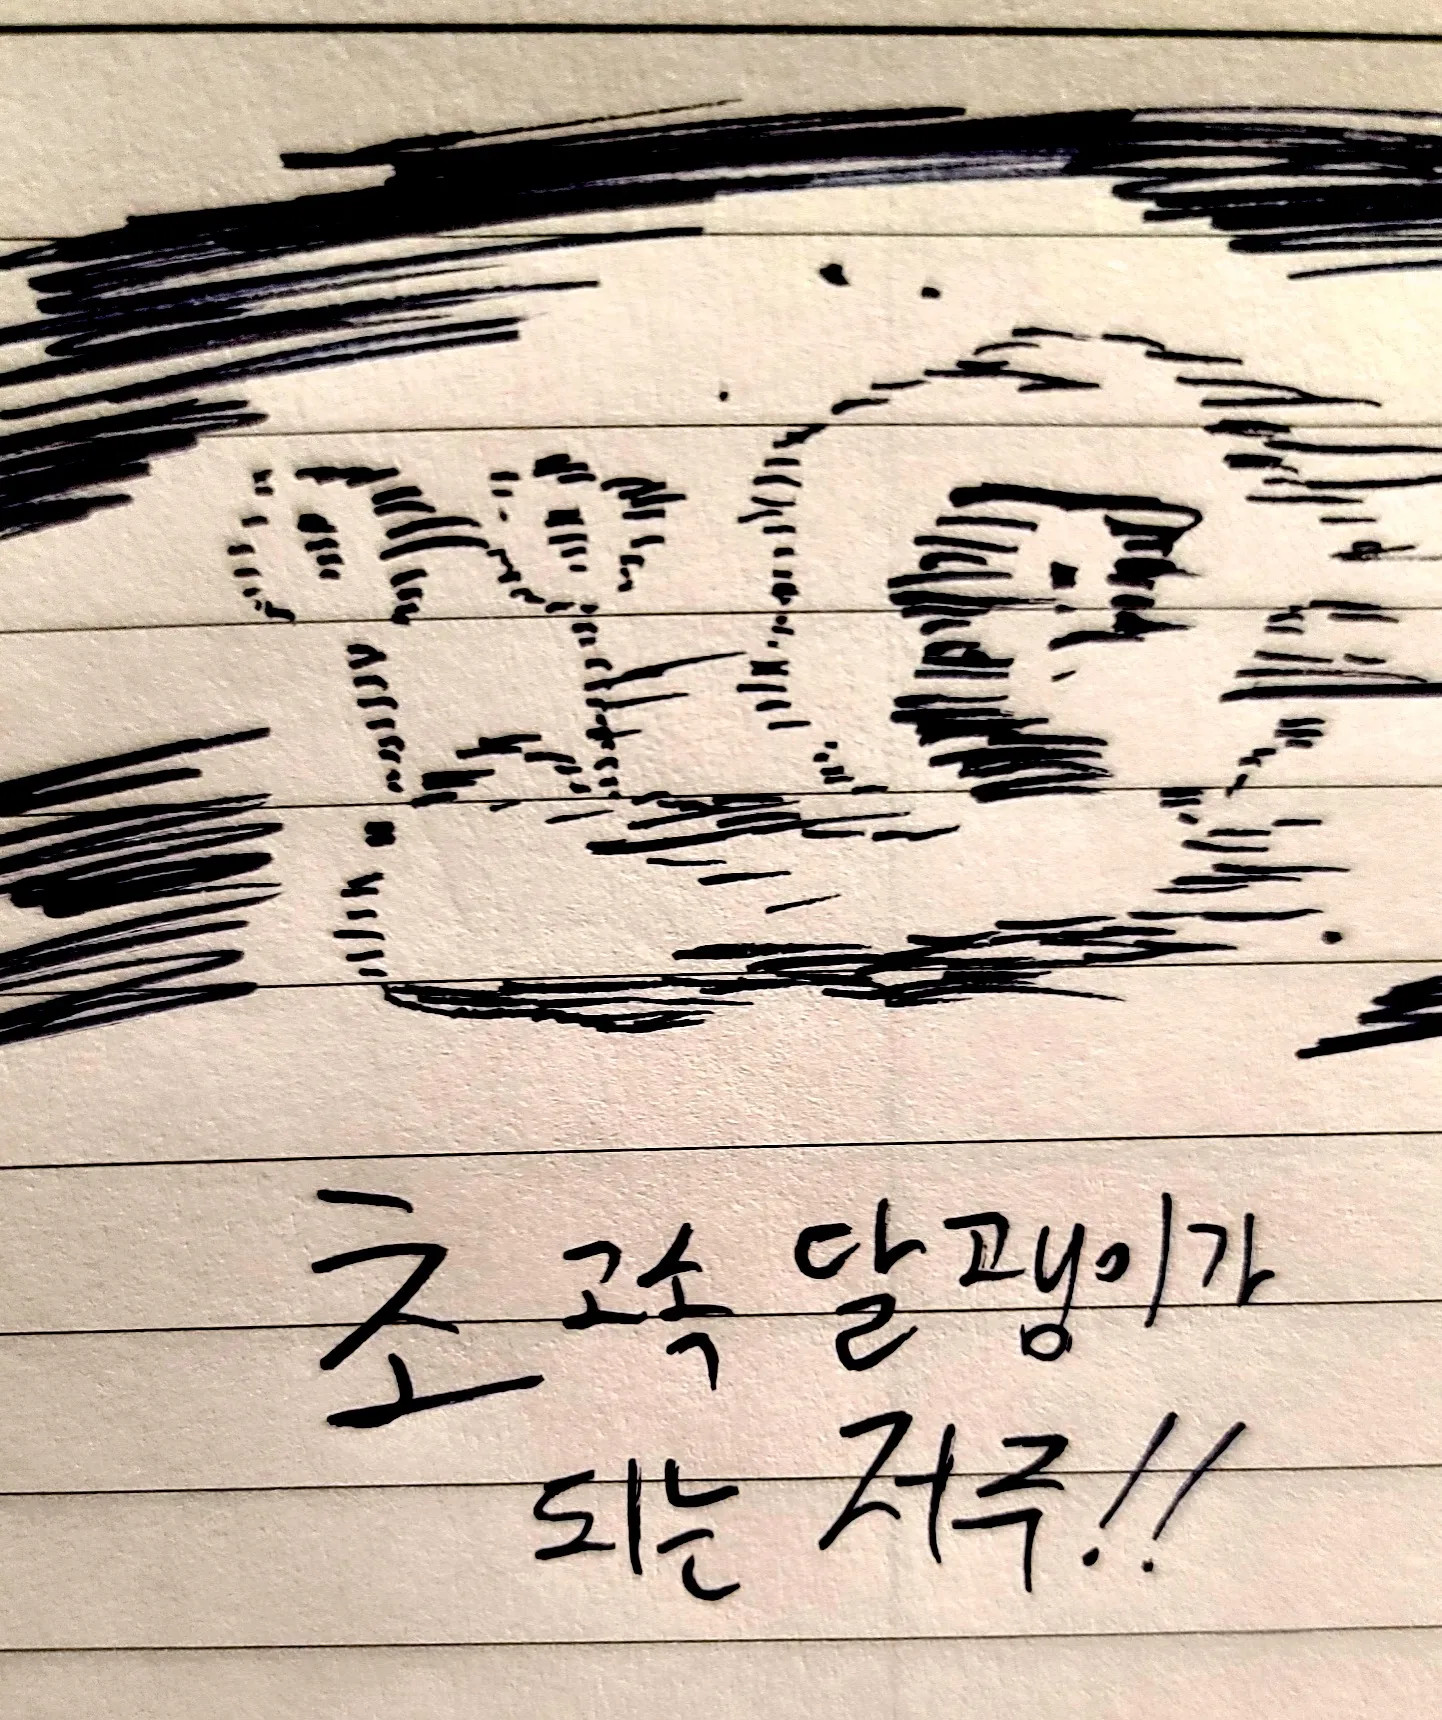 초고속 달괭이가
되는 저주!!